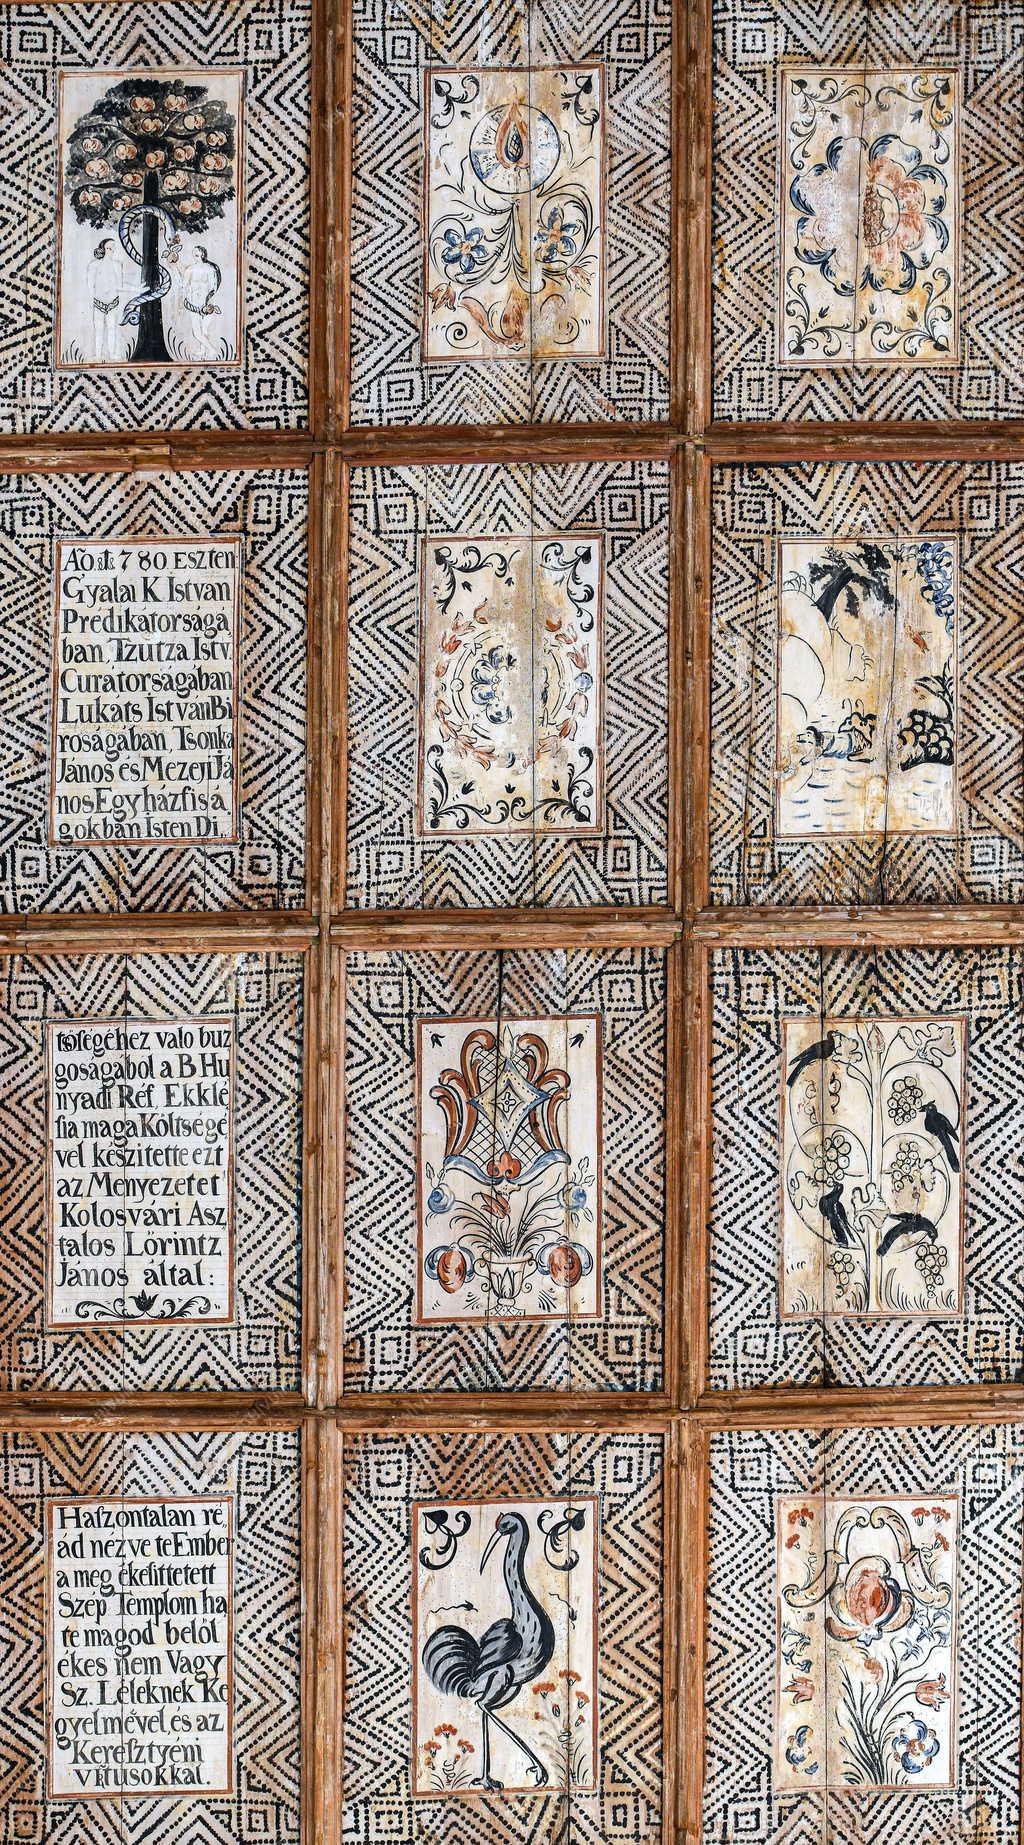 Aō 1780 ESZTEN
Gyalai K István
Prédikátorságá
ban, Tzutza Istv.
Curatorságában
Lukats IstvanBi
roságában, Tsonka
János és Mezei Já
nos Egyházfisá
gokban Isten Di,,
tsőségéhez valo buz
goságábol a B Hu
nyadi Réf. Ekklé
sia maga Kőltségé
vel készitette ezt
az Menyezetet
Kolosvári Asz
talos Lőrintz
János által:
Haszontalan ré,,
ád nézve te Ember
a meg ékesittetett
Szép Templom ha
te magod belöl
ékes nem Vagy
Sz. Léleknek Ke
gyelmével és az
Keresztyéni
VIRtusokkal.